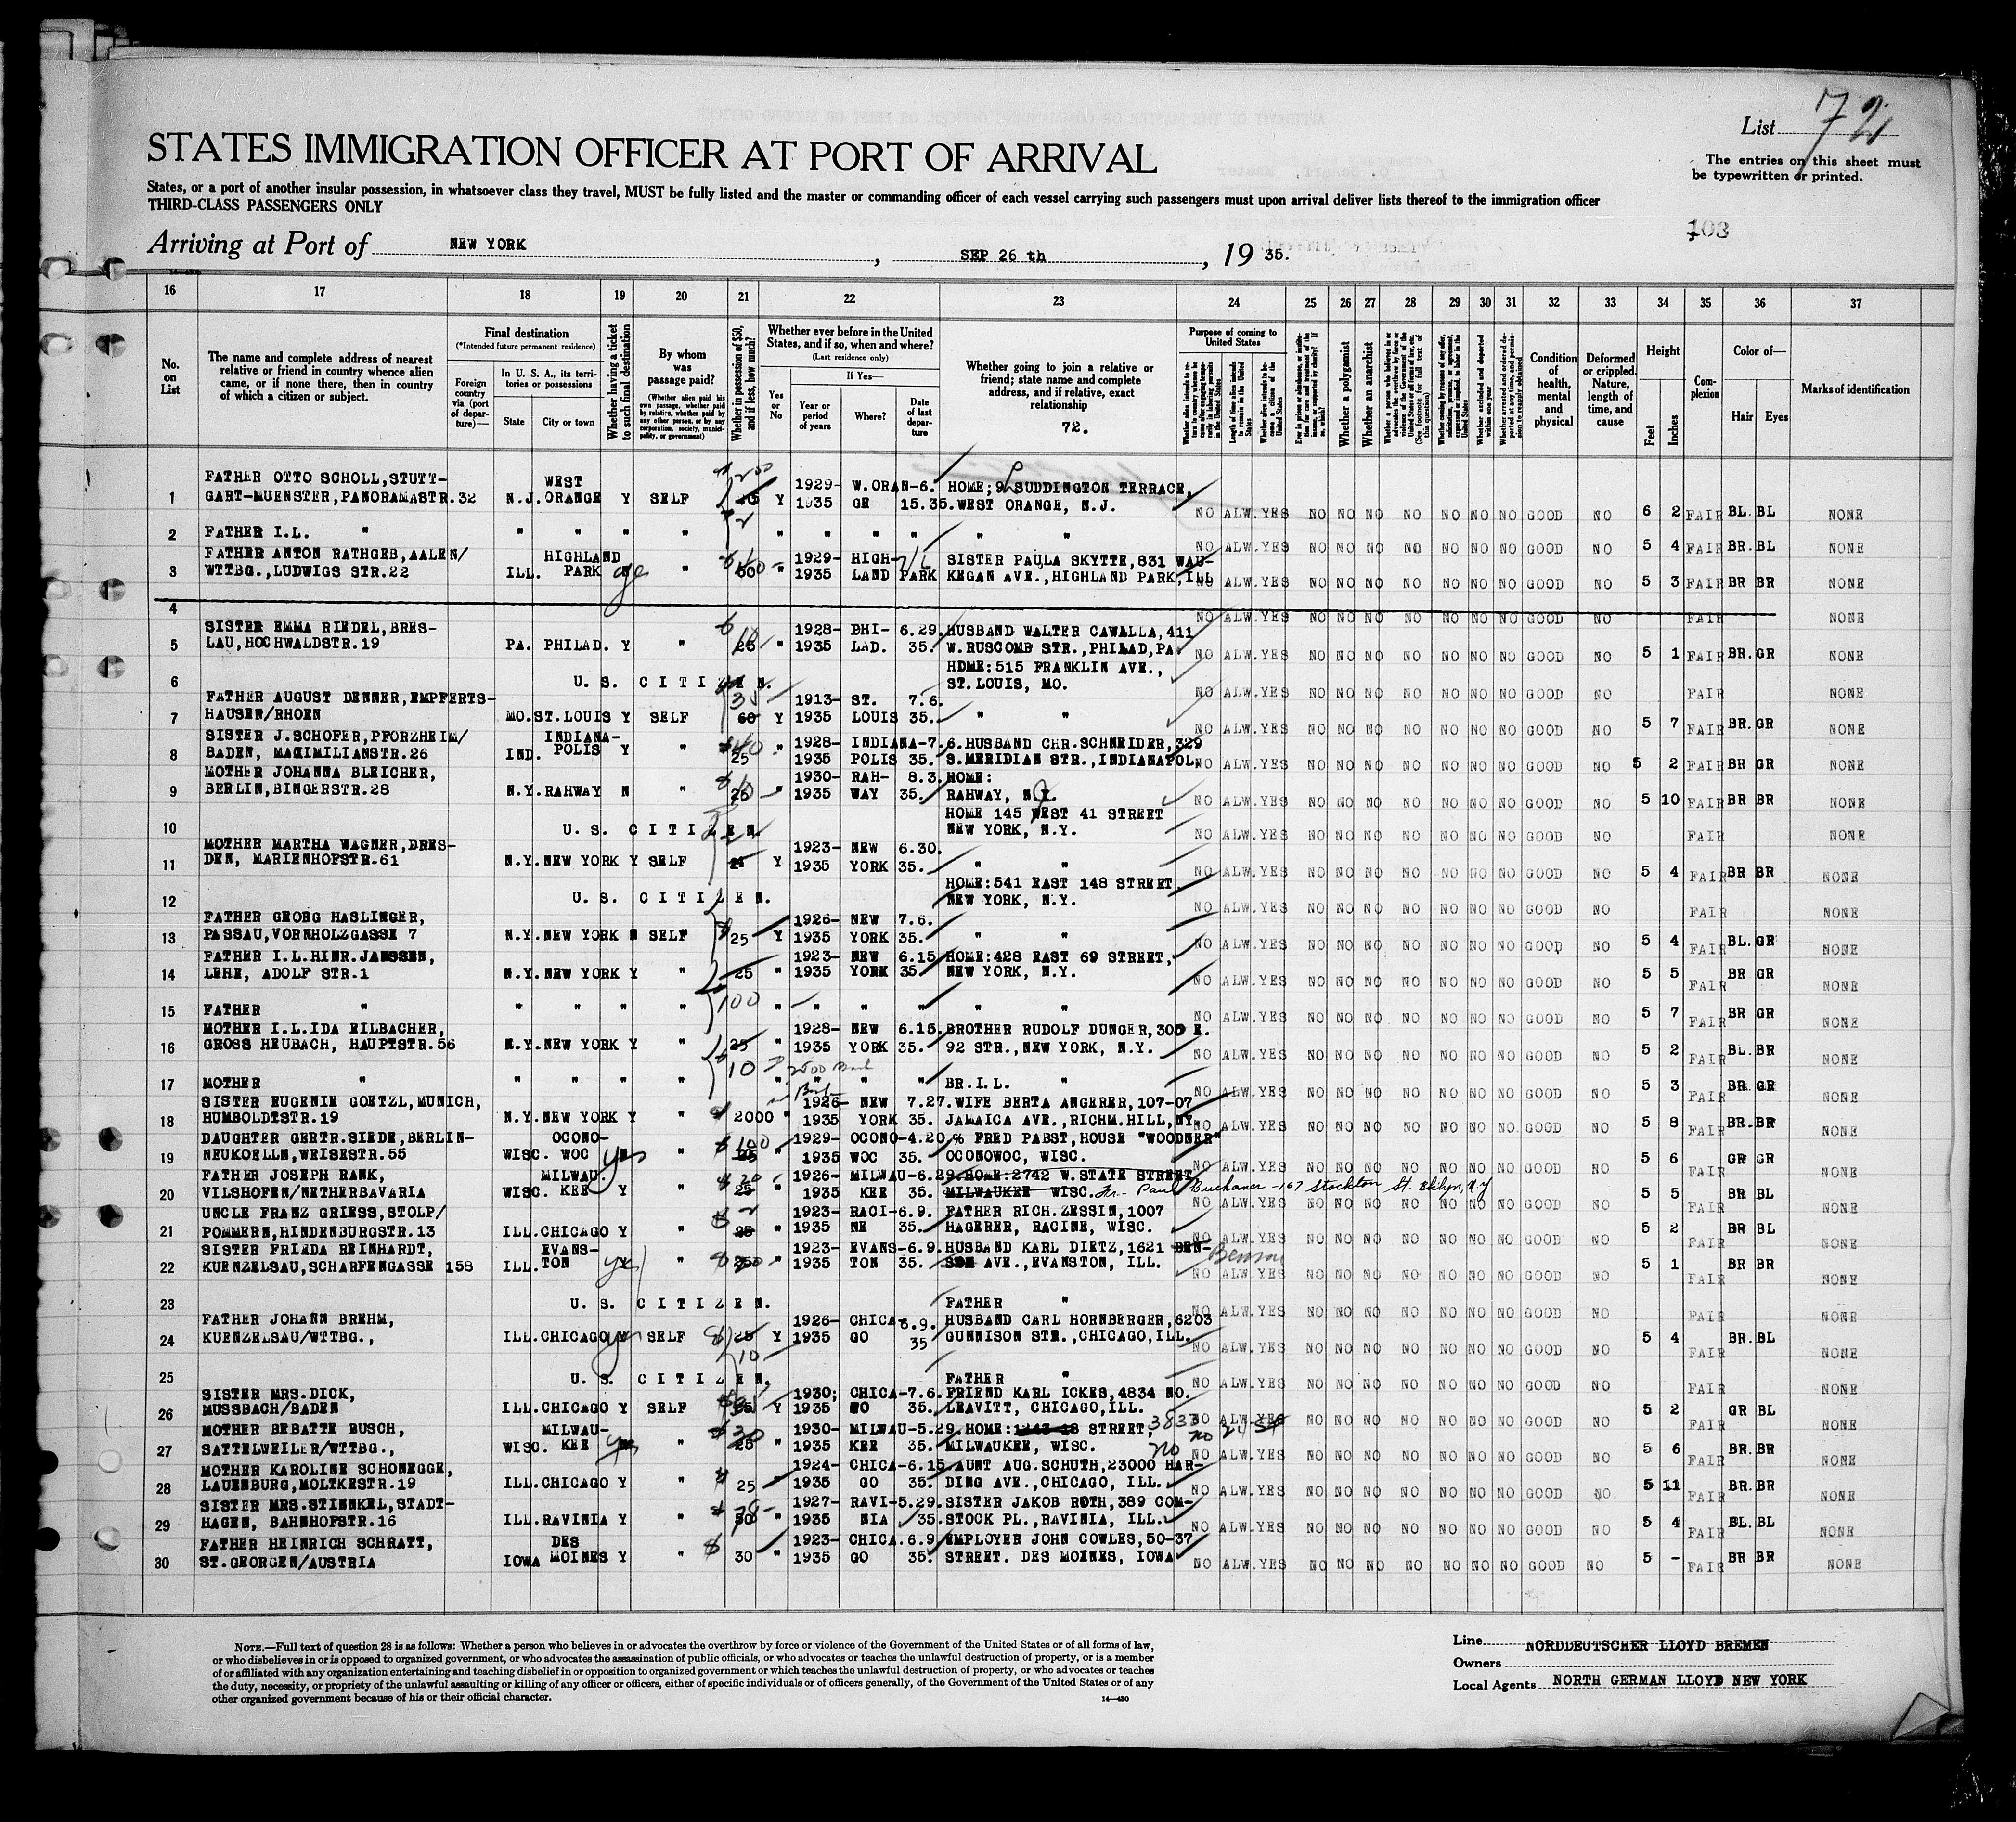 List 72
STATES IMMIGRATION OFFICER AT PORT OF ARRIVAL
The entries on this sheet must
be typewritten or printed.
States, or a port of another insular possession, in whatsoever class they travel, MUST be fully listed and the master or commanding officer of each vessel carrying such passengers must upon arrival deliver lists thereof to the immigration officer
THIRD-CLASS PASSENGERS ONLY
103
Arriving at Port of NEW YORK, SEP 26 th, 19 35.
16 17 18 19 20 21 22 23 24 25 26 27 28 29 30 31 32 33 34 35 36 37
No. on List
The name and complete address of nearest relative or friend in country whence alien came, or if none there, then in country of which a citizen or subject.
Final destination
(*Intended future permanent residence)
Foreign country via (port of departure)—
In U. S. A., its territories or possessions
State
City or town
Whether having a ticket to such final destination
By whom was passage paid?
(Whether alien paid his own passage, whether paid by relative, whether paid by any other person, or by any corporation, society, municipality, or government)
Whether in possession of $50, and if less, how much?
Whether ever before in the United States, and if so, when and where?
(Last residence only)
Yes or No
If Yes—
Year or period of years
Where?
Date of last departure
Whether going to join a relative or friend; state name and complete address, and if relative, exact relationship
72.
Purpose of coming to United States
Length of time alien intends to remain in the United States
Whether alien intends to become a citizen of the United States
Whether a polygamist
Whether an anarchist
Condition of health, mental and physical
Deformed or crippled. Nature, length of time, and cause
Height
Feet
Inches
Complexion
Color of—
Hair
Eyes
Marks of identification
1 FATHER OTTO SCHOLL, STUTT-
GART-MUENSTER, PANORAMASTR.32 N.J. WEST ORANGE Y SELF 200 Y 1929-1935 W.ORAN-GE 6.15.35. HOME; 9 LSUDDINGTON TERRACE, WEST ORANGE, N.J. NO ALW. YES NO NO NO NO NO NO NO GOOD NO 6 2 FAIR BL. BL NONE
2 FATHER I.L. " " " " " " " " " " " NO ALW. YES NO NO NO NO NO NO NO GOOD NO 5 4 FAIR BR. BL NONE
3 FATHER ANTON RATHGEB, AALEN/
WTTBG., LUDWIGS STR.22 ILL. HIGHLAND PARK " " 1929-1935 HIGH-LAND PARK SISTER PAULA SKYTTE, 831 WAU-
KEGAN AVE., HIGHLAND PARK, ILL NO ALW. YES NO NO NO NO NO NO NO GOOD NO 5 3 FAIR BR BR NONE
4 NO ALW. YES NO NO NO NO NO NO NO GOOD NO FAIR NONE
5 SISTER EMMA RIEDEL, BRES-
LAU, HOCHWALDSTR.19 PA. PHILAD. Y " " 1928-1935 PHI-LAD. 6.29.35. HUSBAND WALTER CAWALLA, 411
W.RUSCOMB STR., PHILAD, PA. NO ALW. YES NO NO NO NO NO NO NO GOOD NO 5 1 FAIR BR. GR NONE
6 U. S. CITIZEN. HOME: 515 FRANKLIN AVE.,
ST. LOUIS, MO. NO ALW. YES NO NO NO NO NO NO NO GOOD NO FAIR NONE
7 FATHER AUGUST DENNER, EMPFERTS-
HAUSEN/RHOEN MO. ST.LOUIS Y SELF 35 60 Y 1913-1935 ST. LOUIS 7.6.35. " " NO ALW. YES NO NO NO NO NO NO NO GOOD NO 5 7 FAIR BR. GR NONE
8 SISTER J. SCHOFER, PFORZHEIM/
BADEN, MAXIMILIANSTR.26 IND. INDIANA-POLIS Y " 40 25 " 1928-1935 INDIANA-POLIS 7.6.35. HUSBAND CHR. SCHNEIDER, 329
S. MERIDIAN STR., INDIANAPOL. NO ALW. YES NO NO NO NO NO NO NO GOOD NO 5 2 FAIR BR GR NONE
9 MOTHER JOHANNA BLEICHER,
BERLIN, BINGERSTR.28 N.Y. RAHWAY N " 10 25 " 1930-1935 RAH-WAY 8.3.35. HOME:
RAHWAY, N.J. NO ALW. YES NO NO NO NO NO NO NO GOOD NO 5 10 FAIR BR BR NONE
10 U. S. CITIZEN. HOME 145 WEST 41 STREET
NEW YORK, N.Y. NO ALW. YES NO NO NO NO NO NO NO GOOD NO FAIR NONE
11 MOTHER MARTHA WAGNER, DRES-
DEN, MARIENHOFSTR.61 N.Y. NEW YORK Y SELF Y 1923-1935 NEW YORK 6.30.35. " " NO ALW. YES NO NO NO NO NO NO NO GOOD NO 5 4 FAIR BR BR NONE
12 U. S. CITIZEN. HOME: 541 EAST 148 STREET
NEW YORK, N.Y. NO ALW. YES NO NO NO NO NO NO NO GOOD NO FAIR NONE
13 FATHER GEORG HASLINGER,
PASSAU, VORNHOLZGASSE 7 N.Y. NEW YORK N SELF $25 Y 1926-1935 NEW YORK 7.6.35. " " NO ALW. YES NO NO NO NO NO NO NO GOOD NO 5 4 FAIR BL. GR NONE
14 FATHER I.L. HINR. JANSSEN,
LEHE, ADOLF STR.1 N.Y. NEW YORK Y " 25 " 1923-1935 NEW YORK 6.15.35. HOME: 428 EAST 69 STREET,
NEW YORK, N.Y. NO ALW. YES NO NO NO NO NO NO NO GOOD NO 5 5 FAIR BR GR NONE
15 FATHER " " " " " 100 " " " " " " NO ALW. YES NO NO NO NO NO NO NO GOOD NO 5 7 FAIR BR GR NONE
16 MOTHER I.L. IDA EILBACHER,
GROSS HEUBACH, HAUPTSTR.56 N.Y. NEW YORK Y " 25 " 1928-1935 NEW YORK 6.15.35. BROTHER RUDOLF DUNGER, 305 E.
92 STR., NEW YORK, N.Y. NO ALW. YES NO NO NO NO NO NO NO GOOD NO 5 2 FAIR BL. BR NONE
17 MOTHER " " " " " 10 " " " " BR.I.L. " NO ALW. YES NO NO NO NO NO NO NO GOOD NO 5 3 FAIR BR. GR NONE
18 SISTER EUGENIE GOETZL, MUNICH,
HUMBOLDTSTR.19 N.Y. NEW YORK Y " 2000 " 1926-1935 NEW YORK 7.27.35. WIFE BERTA ANGERER, 107-07
JAMAICA AVE., RICHM.HILL, NY. NO ALW. YES NO NO NO NO NO NO NO GOOD NO 5 8 FAIR BR. BR NONE
19 DAUGHTER GERTR. SIEDE, BERLIN-
NEUKOELLN, WEISESTR.55 WISC. OCONO-WOC yes " $100 " 1929-1935 OCONO-WOC 4.20.35. % FRED PABST, HOUSE "WOODNER"
OCONOWOC, WISC. NO ALW. YES NO NO NO NO NO NO NO GOOD NO 5 6 FAIR GR GR NONE
20 FATHER JOSEPH RANK,
VILSHOFEN/NETHERBAVARIA WISC. MILWAU.KEE Y " 25 " 1926-1935 MILWAU-KEE 6.29.35. HOME: 2742 W.STATE STREET
MILWAUKEE WISC. Paul Buchaner - 167 Stockton St. Bklyn, N.Y NO ALW. YES NO NO NO NO NO NO NO GOOD NO 5 5 FAIR BR BL NONE
21 UNCLE FRANZ GRIESS, STOLP/
POMMERN, HINDENBURGSTR.13 ILL. CHICAGO Y " 2 25 " 1923-1935 RACI-NE 6.9.35. FATHER RICH. ZESSIN, 1007
HAGERER, RACINE, WISC. NO ALW. YES NO NO NO NO NO NO NO GOOD NO 5 2 FAIR BR BL NONE
22 SISTER FRIEDA REINHARDT,
KUENZELSAU, SCHARFENGASSE 158 ILL. EVANS-TON yes " " 1923-1935 EVANS-TON 6.9.35. HUSBAND KARL DIETZ, 1621 BEN-
SON AVE., EVANSTON, ILL. Benson NO ALW. YES NO NO NO NO NO NO NO GOOD NO 5 1 FAIR BR BR NONE
23 U. S. CITIZEN. FATHER " NO ALW. YES NO NO NO NO NO NO NO GOOD NO FAIR NONE
24 FATHER JOHANN BREHM,
KUENZELSAU/WTTBG., ILL. CHICAGO yes SELF $25 10 Y 1926-1935 CHICA-GO 6.9.35 HUSBAND CARL HORNBERGER, 6203
GUNNISON STR., CHICAGO, ILL. NO ALW. YES NO NO NO NO NO NO NO GOOD NO 5 4 FAIR BR. BL NONE
25 U. S. CITIZEN. FATHER " NO ALW. YES NO NO NO NO NO NO NO GOOD NO FAIR NONE
26 SISTER MRS. DICK,
MUSSBACH/BADEN ILL. CHICAGO Y SELF Y 1930; 1935 CHICA-GO 7.6.35. FRIEND KARL ICKES, 4834 NO.
LEAVITT, CHICAGO, ILL. NO ALW. YES NO NO NO NO NO NO NO GOOD NO 5 2 FAIR GR BL NONE
27 MOTHER BEBATTE BUSCH,
SATTELWEILER/WTTBG., WISC. MILWAU-KEE yes " 25 " 1930-1935 MILWAU-KEE 5.29.35. HOME: STREET, 3833 no 24 St
MILWAUKEE, WISC. no NO NO NO NO NO NO NO GOOD NO 5 6 FAIR BR. BR NONE
28 MOTHER KAROLINE SCHONEGGE,
LAUENBURG, MOLTKESTR.19 ILL. CHICAGO Y " $25 " 1924-1935 CHICA-GO 6.15.35. AUNT AUG. SCHUTH, 23000 HAR-
DING AVE., CHICAGO, ILL. NO ALW. YES NO NO NO NO NO NO NO GOOD NO. 5 11 FAIR BR. BR NONE
29 SISTER MRS. STIENKEL, STADT-
HAGEN, BAHNHOFSTR.16 ILL. RAVINIA Y " " 1927-1935 RAVI-NIA 5.29.35. SISTER JAKOB ROTH, 389 COM-
STOCK PL., RAVINIA, ILL. NO ALW. YES NO NO NO NO NO NO NO GOOD NO 5 4 FAIR BL. BL NONE
30 FATHER HEINRICH SCHRATT,
ST.GEORGEN/AUSTRIA IOWA DES MOINES Y " $30 " 1923-1935 CHICA.GO 6.9.35. EMPLOYER JOHN COWLES, 50-37
STREET. DES MOINES, IOWA NO ALW. YES NO NO NO NO NO NO NO GOOD NO 5 - FAIR BR BR NONE
NOTE.—Full text of question 28 is as follows: Whether a person who believes in or advocates the overthrow by force or violence of the Government of the United States or of all forms of law,
or who disbelieves in or is opposed to organized government, or who advocates the assassination of public officials, or who advocates or teaches the unlawful destruction of property, or is a member
of or affiliated with any organization entertaining and teaching disbelief in or opposition to organized government or which teaches the unlawful destruction of property, or who advocates or teaches
the duty, necessity, or propriety of the unlawful assaulting or killing of any officer or officers, either of specific individuals or of officers generally, of the Government of the United States or of any
other organized government because of his or their official character.
14—430
Line NORDDEUTSCHER LLOYD BREMEN
Owners
Local Agents NORTH GERMAN LLOYD NEW YORK